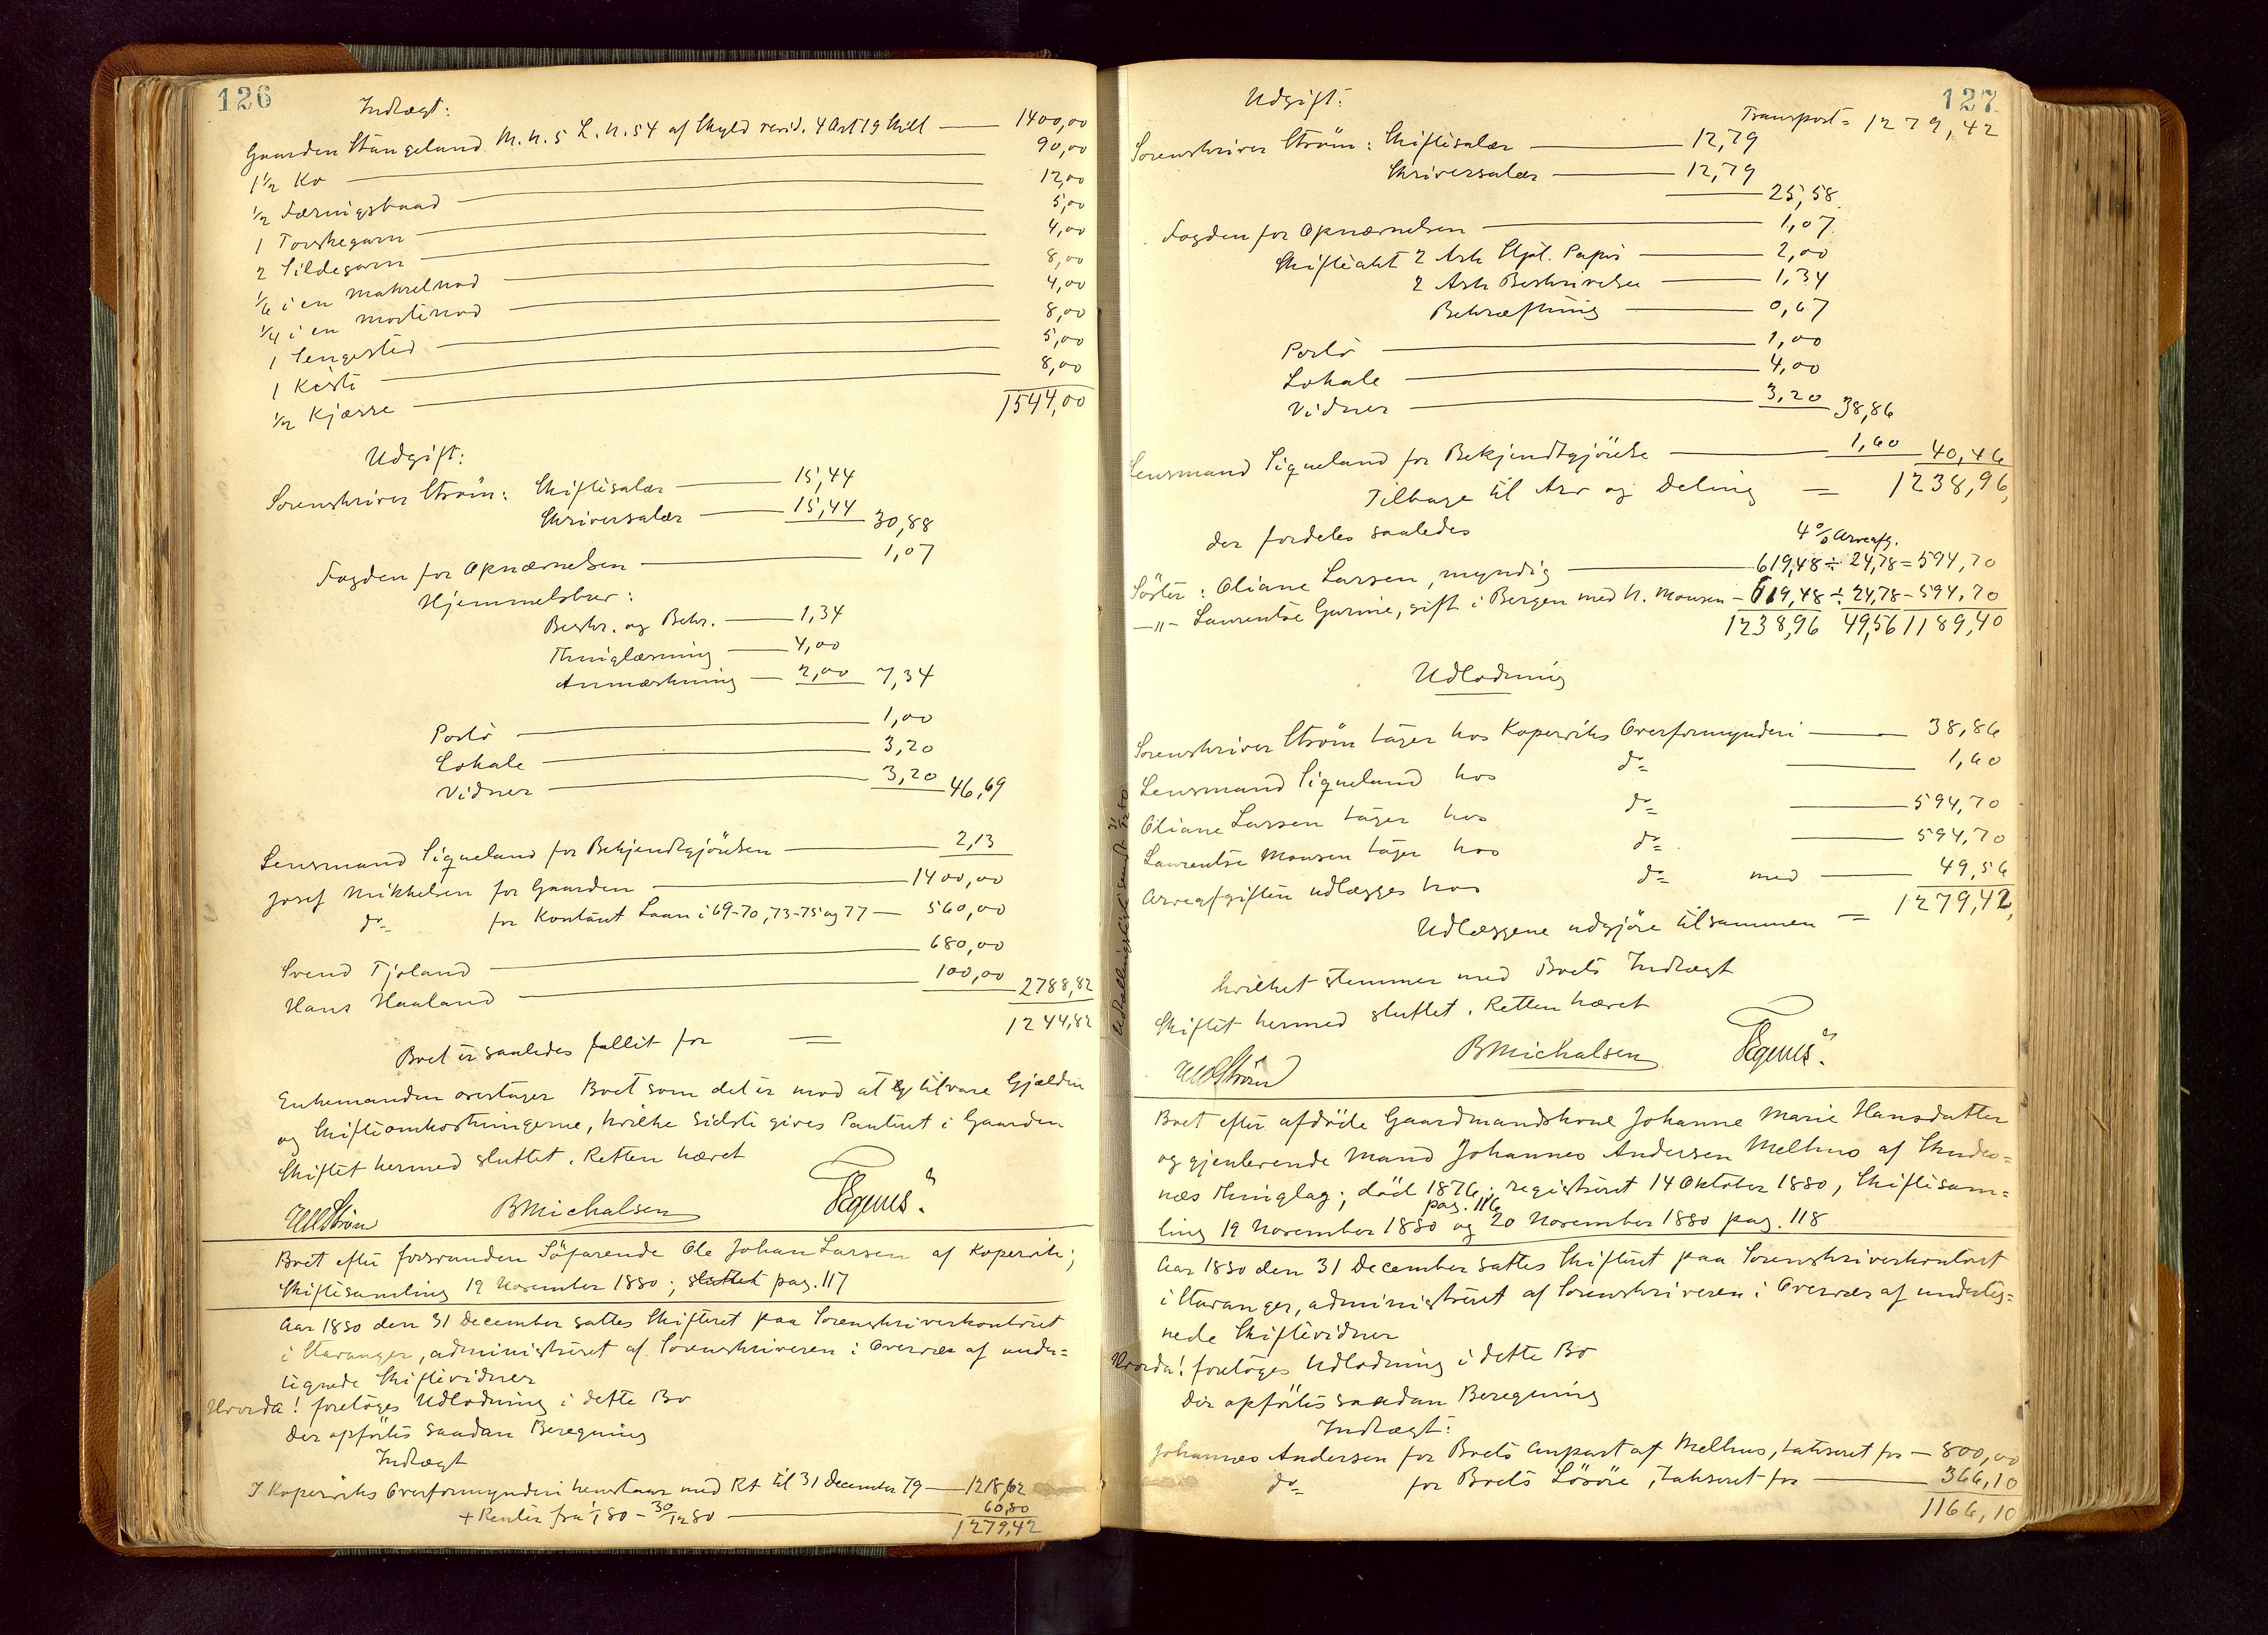 126
Indtægt:
Gaarden Stangeland M. N. 5 L. N. 54 af Skyld revid. 4 Ort 19 Skill — 1400,00
1 1/2 Ko — 90,00
1/2 Færingsbaad — 12,00
1 Torskegarn — 5,00
2 Sildegarn — 4,00
1/6 i en Makrelnod — 8,00
1/4 i en Mortenod — 4,00
1 Sengested — 8,00
1 Kiste — 5,00
1/2 Kjærre — 8,00
1544,00
Udgift:
Sorenskriver Strøm: Skiftesalær — 15,44
Skriversalær — 15,44 30,88
Fogden for Opnævnelsen — 1,07
Hjemmelsbrev:
Beskr. og Bekr. — 1,34
Thinglæsning — 4,00
Anmærkning — 2,00 7,34
Porto — 1,00
Lokale — 3,20
Vidner — 3,20 46,69
Lensmand Liqueland for Bekjendtgjörelsen — 2,13
Josef Mikkelsen for Gaarden — 1400,00
do= for Kontant Laan i 69-70, 73-75 og 77 — 560,00
Svend Tjoland — 680,00
Hans Haaland — 100,00 2788,82
Boet er saaledes fallit for = 1244,82
Enkemanden overtager Boet som det er mod at tilsvare Gjælden
og Skifteomkostningerne, hvilke sidste gives Panteret i Gaarden
Skiftet hermed sluttet. Retten hævet
WStröm BMichalsen TEgenes.
Boet efter forsvunden Söfarende Ole Johan Larsen af Kopervik;
Skiftesamling 19 November 1880; sluttet pag. 117
Aar 1880 den 31 December sattes Skifteret paa Sorenskriverkontoret
i Stavanger, administreret af Sorenskriveren i Overvær af under=
tegnede Skiftevidner
Hvorda! foretoges Udlodning i dette Bo
Der opförtes saadan Beregning
Indtægt
I Koperviks Overformynderi henstaar med Rt til 31 December 79 — 1218,62
+ Renter fra 1/1 80 - 30/12 80 — 60,80
1279,42
127
Udgift:
Transport = 1279,42
Sorenskriver Ström: Skiftesalær — 12,79
Skriversalær — 12,79
25,58
Fogden for Opnævnelsen — 1,07
Skifteakt 2 Ark Stpl. Papir — 2,00
2 Ark Beskrivelse — 1,34
Bekræftning — 0,67
Porto — 1,00
Lokale — 4,00
Vidner — 3,20 38,86
Lensmand Liqueland for Bekjendtgjörelse — 1,60 40,46
Tilbage til Arv og Deling = 1238,96
der fordeles saaledes
4% Arveafg.
Söster: Oliane Larsen, myndig — 619,48 ÷ 24,78 = 594,70
—"— Laurentse Gurine, gift i Bergen med N. Monsen - 619,48 ÷ 24,78 - 594,70
1238,96 49,56 1189,40
Udlodning
Sorenskriver Ström tager hos Koperviks Overformynderi — 38,86
Lensmand Liqueland hos do= — 1,60
Oliane Larsen tager hos do= — 594,70
Laurentse Monsen tager hos do= — 594,70
Arveafgiften udlægges hos do= med — 49,56
Udlæggene udgjöre tilsammen = 1279,42
hvilket stemmer med Boets Indtægt
Skiftet hermed sluttet. Retten hævet
WStröm BMichalsen TEgenes.
Boet efter afdöde Gaardmandskone Johanne Marie Hansdatter
og gjenlevende Mand Johannes Andersen Melhus af Skudes=
næs Thinglag; död 1876; registreret 14 Oktober 1880, Skiftesam=
pag. 116
ling 19 November 1880 og 20 November 1880 pag. 118
Aar 1880 den 31 December sattes Skifteret paa Sorenskriverkontoret
i Stavanger, administreret af Sorenskriveren i Overvær af underteg=
nede Skiftevidner
Hvorda! foretoges Udlodning i dette Bo
Der opförtes saadan Beregning
Indtægt:
Johannes Andersen for Boets Anpart af Melhus, takseret for — 800,00
do= for Boets Lösöre, takseret for — 366,10
1166,10